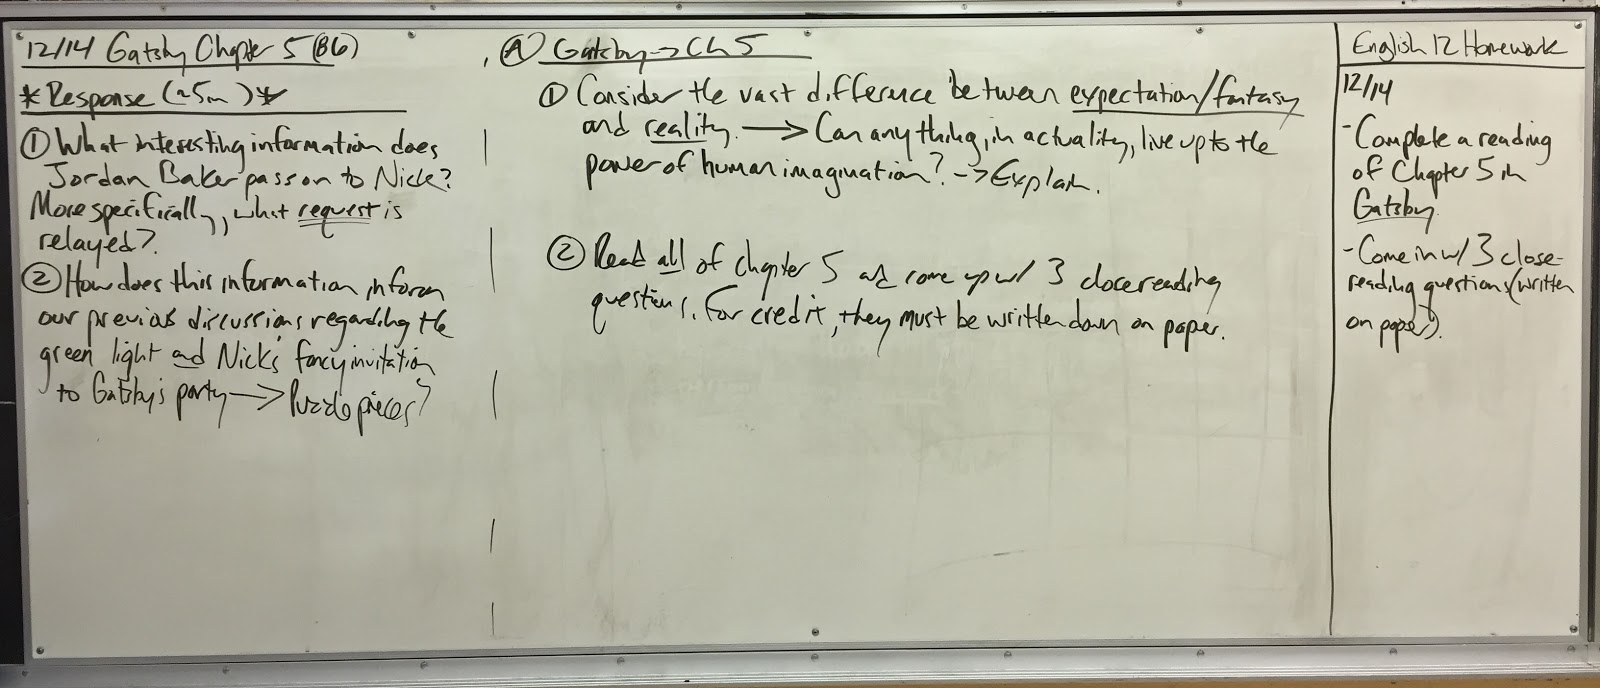 12/14 Gatsby Chapter 5 (B6)
*Response (~5m)*
① What interesting information does
Jordan Baker pass on to Nick?
More specifically, what request is
relayed?
② How does this information inform
our previous discussions regarding the
green light and Nick's fancy invitation
to Gatsby's party → Puzzle pieces?
Ⓐ Gatsby → Ch 5
① Consider the vast difference between expectation/fantasy
and reality. → Can anything, in actuality, live up to the
power of human imagination? → Explain.
② Read all of chapter 5 and come up w/ 3 close reading
questions. For credit, they must be written down on paper.
English 12 Homework
12/14
- Complete a reading
of Chapter 5 in
Gatsby.
- Come in w/ 3 close-
reading questions (written
on paper).